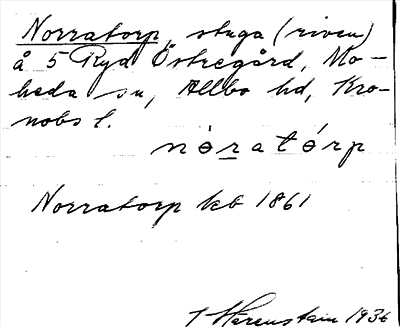 Norratorp, stuga (riven)
å 5 Ryd Östregård, Mo-
heda sn, Allbo hd, Kro-
nobs l.
nòratórp
Norratorp kb 1861
1936